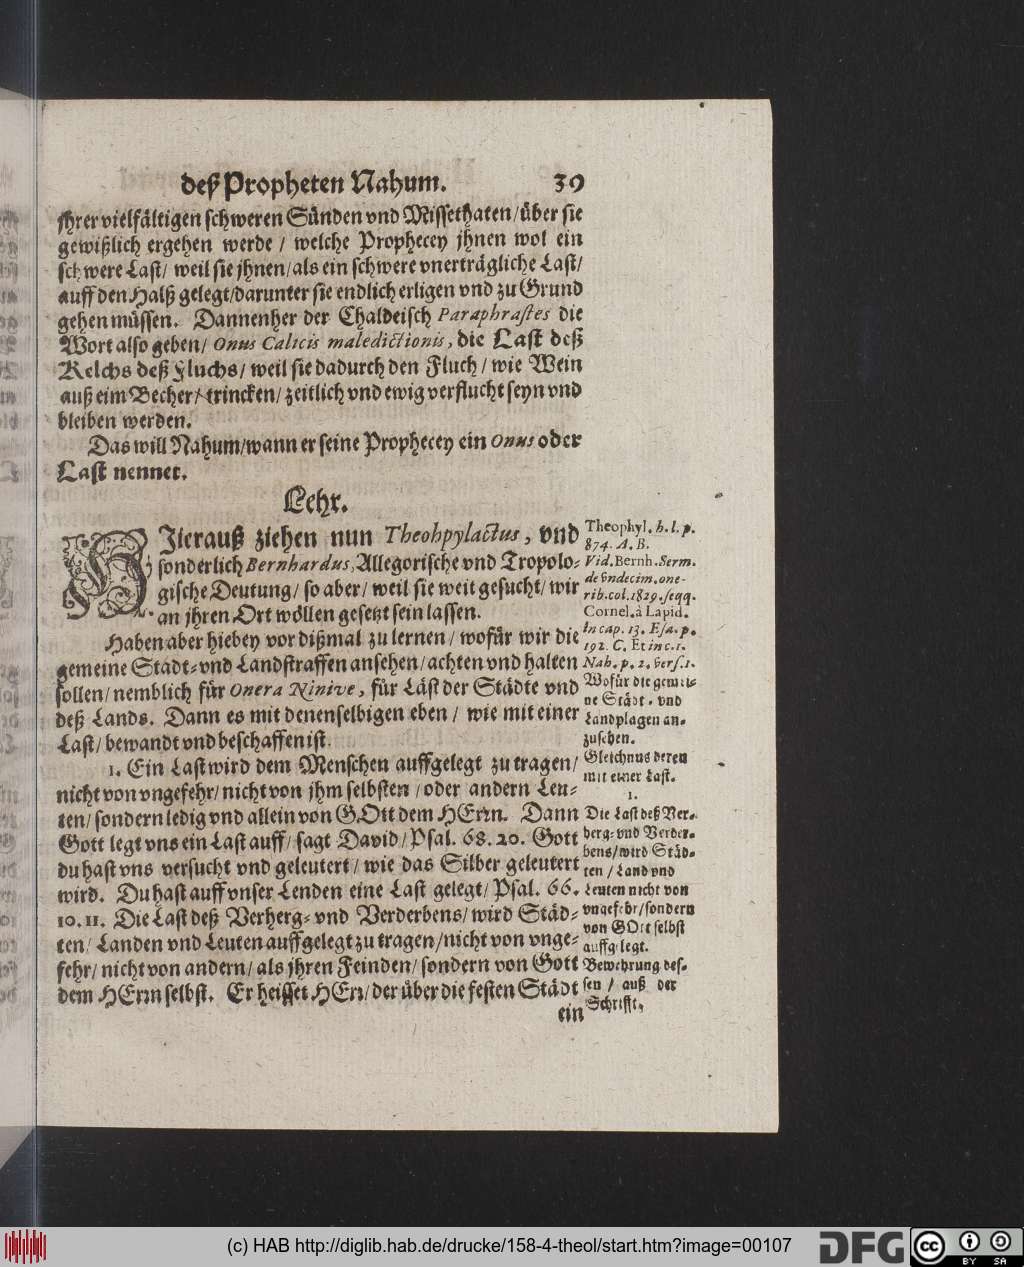 deß Propheten Nahum. 39
jhrer vielfältigen schweren Sünden vnd Missethaten/über sie
gewißlich ergehen werde / welche Prophecey jhnen wol ein
schwere Last/ weil sie jhnen/als ein schwere vnerträgliche Last/
auff den Halß gelegt/darunter sie endlich erligen vnd zu Grund
gehen müssen. Dannenher der Chaldeisch Paraphrastes die
Wort also geben/ Onus Calicis maledictionis, die Last deß
Kelchs deß Fluchs/ weil sie dadurch den Fluch/ wie Wein
auß eim Becher/ trincken/ zeitlich vnd ewig verflucht seyn vnd
bleiben werden.
Das will Nahum/wann er seine Prophecey ein Onus oder
Last nennet.
Lehr.
HIerauß ziehen nun Theohpylactus, vnd
sonderlich Bernhardus, Allegorische vnd Tropolo-
gische Deutung/ so aber/ weil sie weit gesucht/ wir
an jhren Ort wöllen gesetzt sein lassen.
Haben aber hiebey vor dißmal zu lernen/ wofür wir die
gemeine Stadt- vnd Landstraffen ansehen/ achten vnd halten
sollen/ nemblich für Onera Ninive, für Läst der Städte vnd
deß Lands. Dann es mit denenselbigen eben / wie mit einer
Last/ bewandt vnd beschaffen ist.
1. Ein Last wird dem Menschen auffgelegt zu tragen/
nicht von vngefehr/ nicht von jhm selbsten / oder andern Leu-
ten/ sondern ledig vnd allein von GOtt dem HErrn. Dann
Gott legt vns ein Last auff/ sagt David/ Psal. 68. 20. Gott
du hast vns versucht vnd geleutert/ wie das Silber geleutert
wird. Du hast auff vnser Lenden eine Last gelegt/ Psal. 66.
10. 11. Die Last deß Verherg- vnd Verderbens/ wird Städ-
ten/ Landen vnd Leuten auffgelegt zu tragen/nicht von vnge-
fehr/ nicht von andern/ als jhren Feinden/ sondern von Gott
dem HErrn selbst. Er heisset HErr/ der über die festen Städt
ein
Theophyl. h. l. p.
874. A. B.
Vid. Bernh. Serm.
de vndecim. one-
rib. col. 1829. seqq.
Cornel. à Lapid.
in cap. 13. Esa. p.
192. C. Et in c. 1.
Nah. p. 2. vers. 1.
Wofür die gemei-
ne Städt- vnd
Landplagen an-
zusehen.
Gleichnus deren
mit einer Last.
1.
Die Last deß Ver-
herg- vnd Verder-
bens/ wird Städ-
ten / Land vnd
Leuten nicht von
vngefehr/ sondern
von GOtt selbst
auffgelegt.
Bewehrung des-
sen / auß der
Schrifft.
(c) HAB http://diglib.hab.de/drucke/158-4-theol/start.htm?image=00107
DFG
cc
BY SA